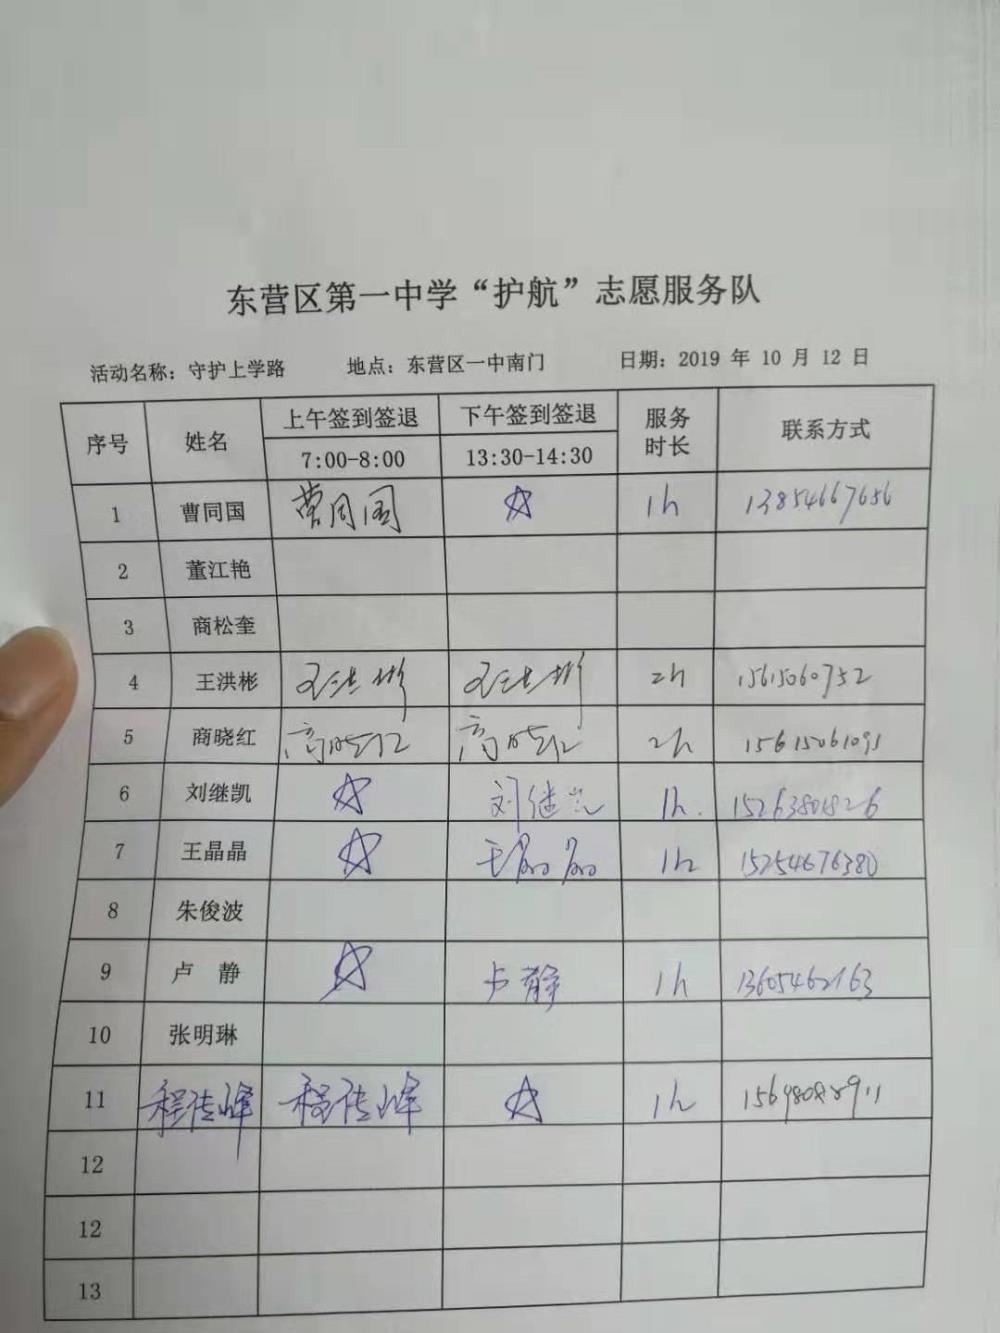 东营区第一中学“护航”志愿服务队
活动名称：守护上学路 地点：东营区一中南门 日期：2019 年 10 月 12 日
序号 姓名 上午签到签退 下午签到签退 服务时长 联系方式
7:00-8:00 13:30-14:30
1 曹同国 曹同国 ☆ 1h 13854667656
2 董江艳
3 商松奎
4 王洪彬 王洪彬 王洪彬 2h 15615060752
5 商晓红 商晓红 商晓红 2h 15615061091
6 刘继凯 ☆ 刘继凯 1h. 15263801826
7 王晶晶 ☆ 王晶晶 1h 15254676380
8 朱俊波
9 卢 静 ☆ 卢静 1h 13605462163
10 张明琳
11 程传峰 程传峰 ☆ 1h
12
12
13